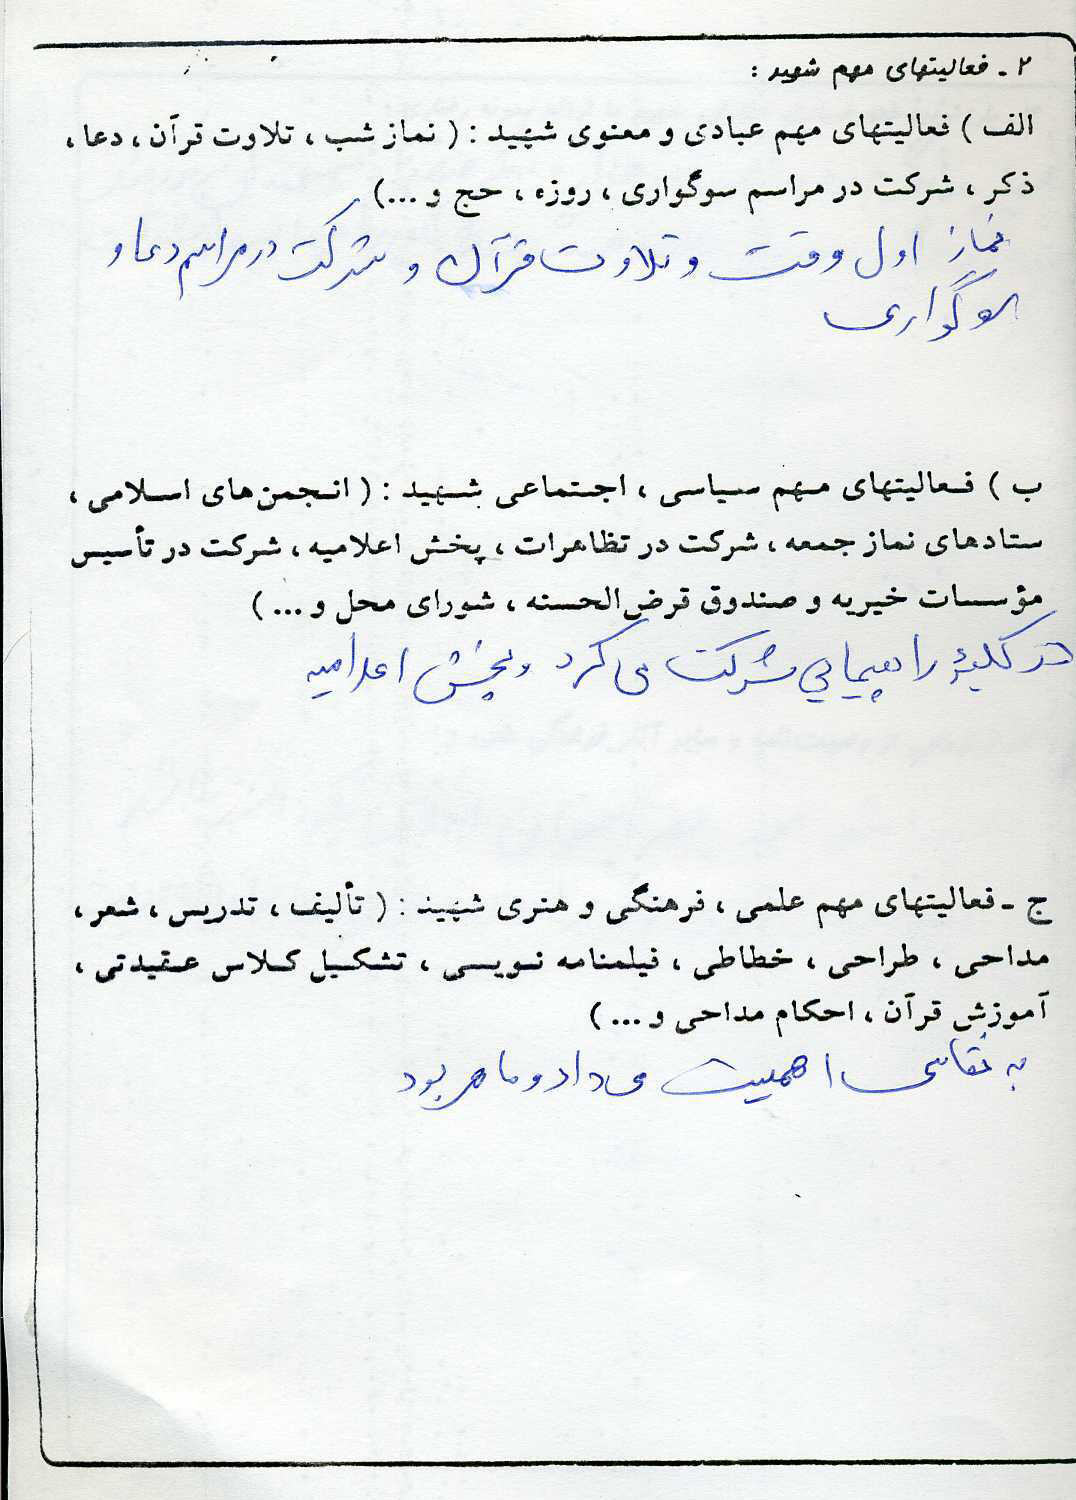 ۲ ـ فعالیتهای مهم شهید :
الف ) فعالیتهای مهم عبادی و معنوی شهید : ( نماز شب ، تلاوت قرآن ، دعا ،
ذکر ، شرکت در مراسم سوگواری ، روزه ، حج و ...)
نماز اول وقت و تلاوت قرآن و شرکت در مراسم دعا و
سوگواری
ب ) فعالیتهای مهم سیاسی ، اجتماعی شهید : ( انجمن‌های اسلامی ،
ستادهای نماز جمعه ، شرکت در تظاهرات ، پخش اعلامیه ، شرکت در تأسیس
مؤسسات خیریه و صندوق قرض‌الحسنه ، شورای محل و ... )
در کلیهٔ راهپیمایی شرکت می کرد و پخش اعلامیه
ج ـ فعالیتهای مهم علمی ، فرهنگی و هنری شهید : ( تألیف ، تدریس ، شعر ،
مداحی ، طراحی ، خطاطی ، فیلمنامه نویسی ، تشکیل کلاس عقیدتی ،
آموزش قرآن ، احکام مداحی و ... )
به نقاشی اهمیت می داد و ماهر بود